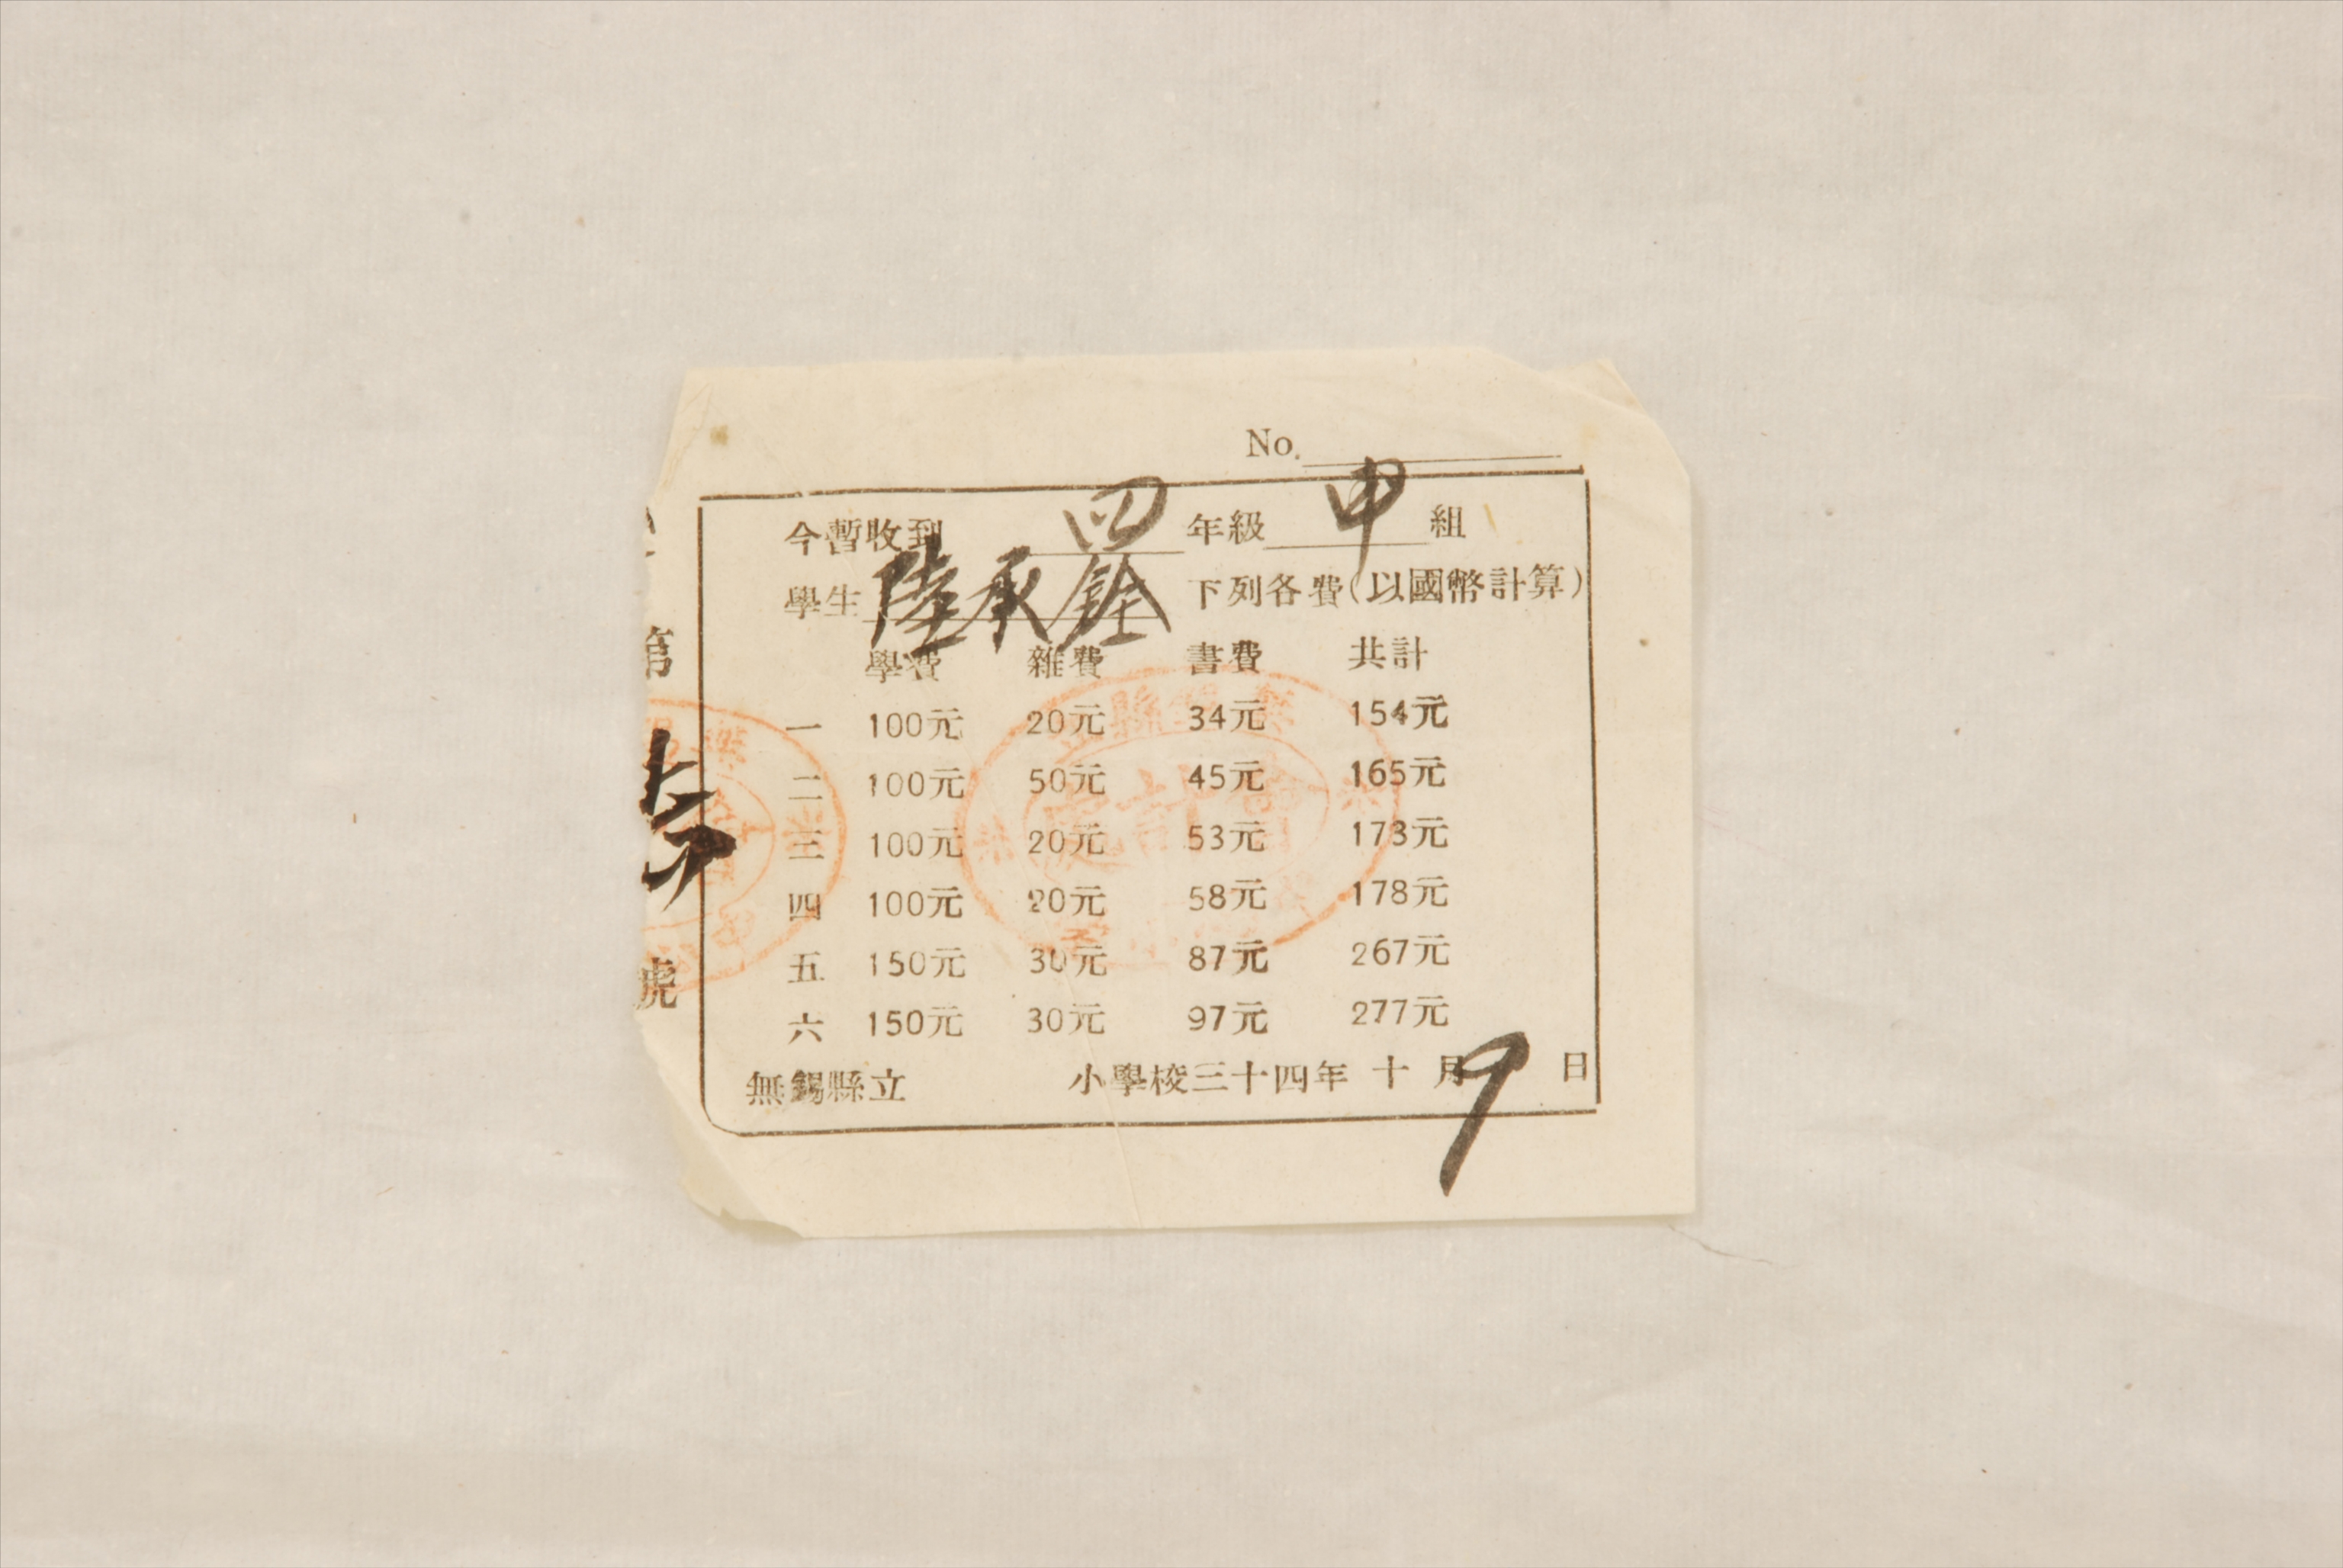 No.
今暫收到 四 年級 甲 組
學生 陸承銓 下列各費(以國幣計算)
學費 雜費 書費 共計
一 100元 20元 34元 154元
二 100元 50元 45元 165元
三 100元 20元 53元 173元
四 100元 20元 58元 178元
五 150元 30元 87元 267元
六 150元 30元 97元 277元
無錫縣立 小學校三十四年 十 月 9 日
第
號